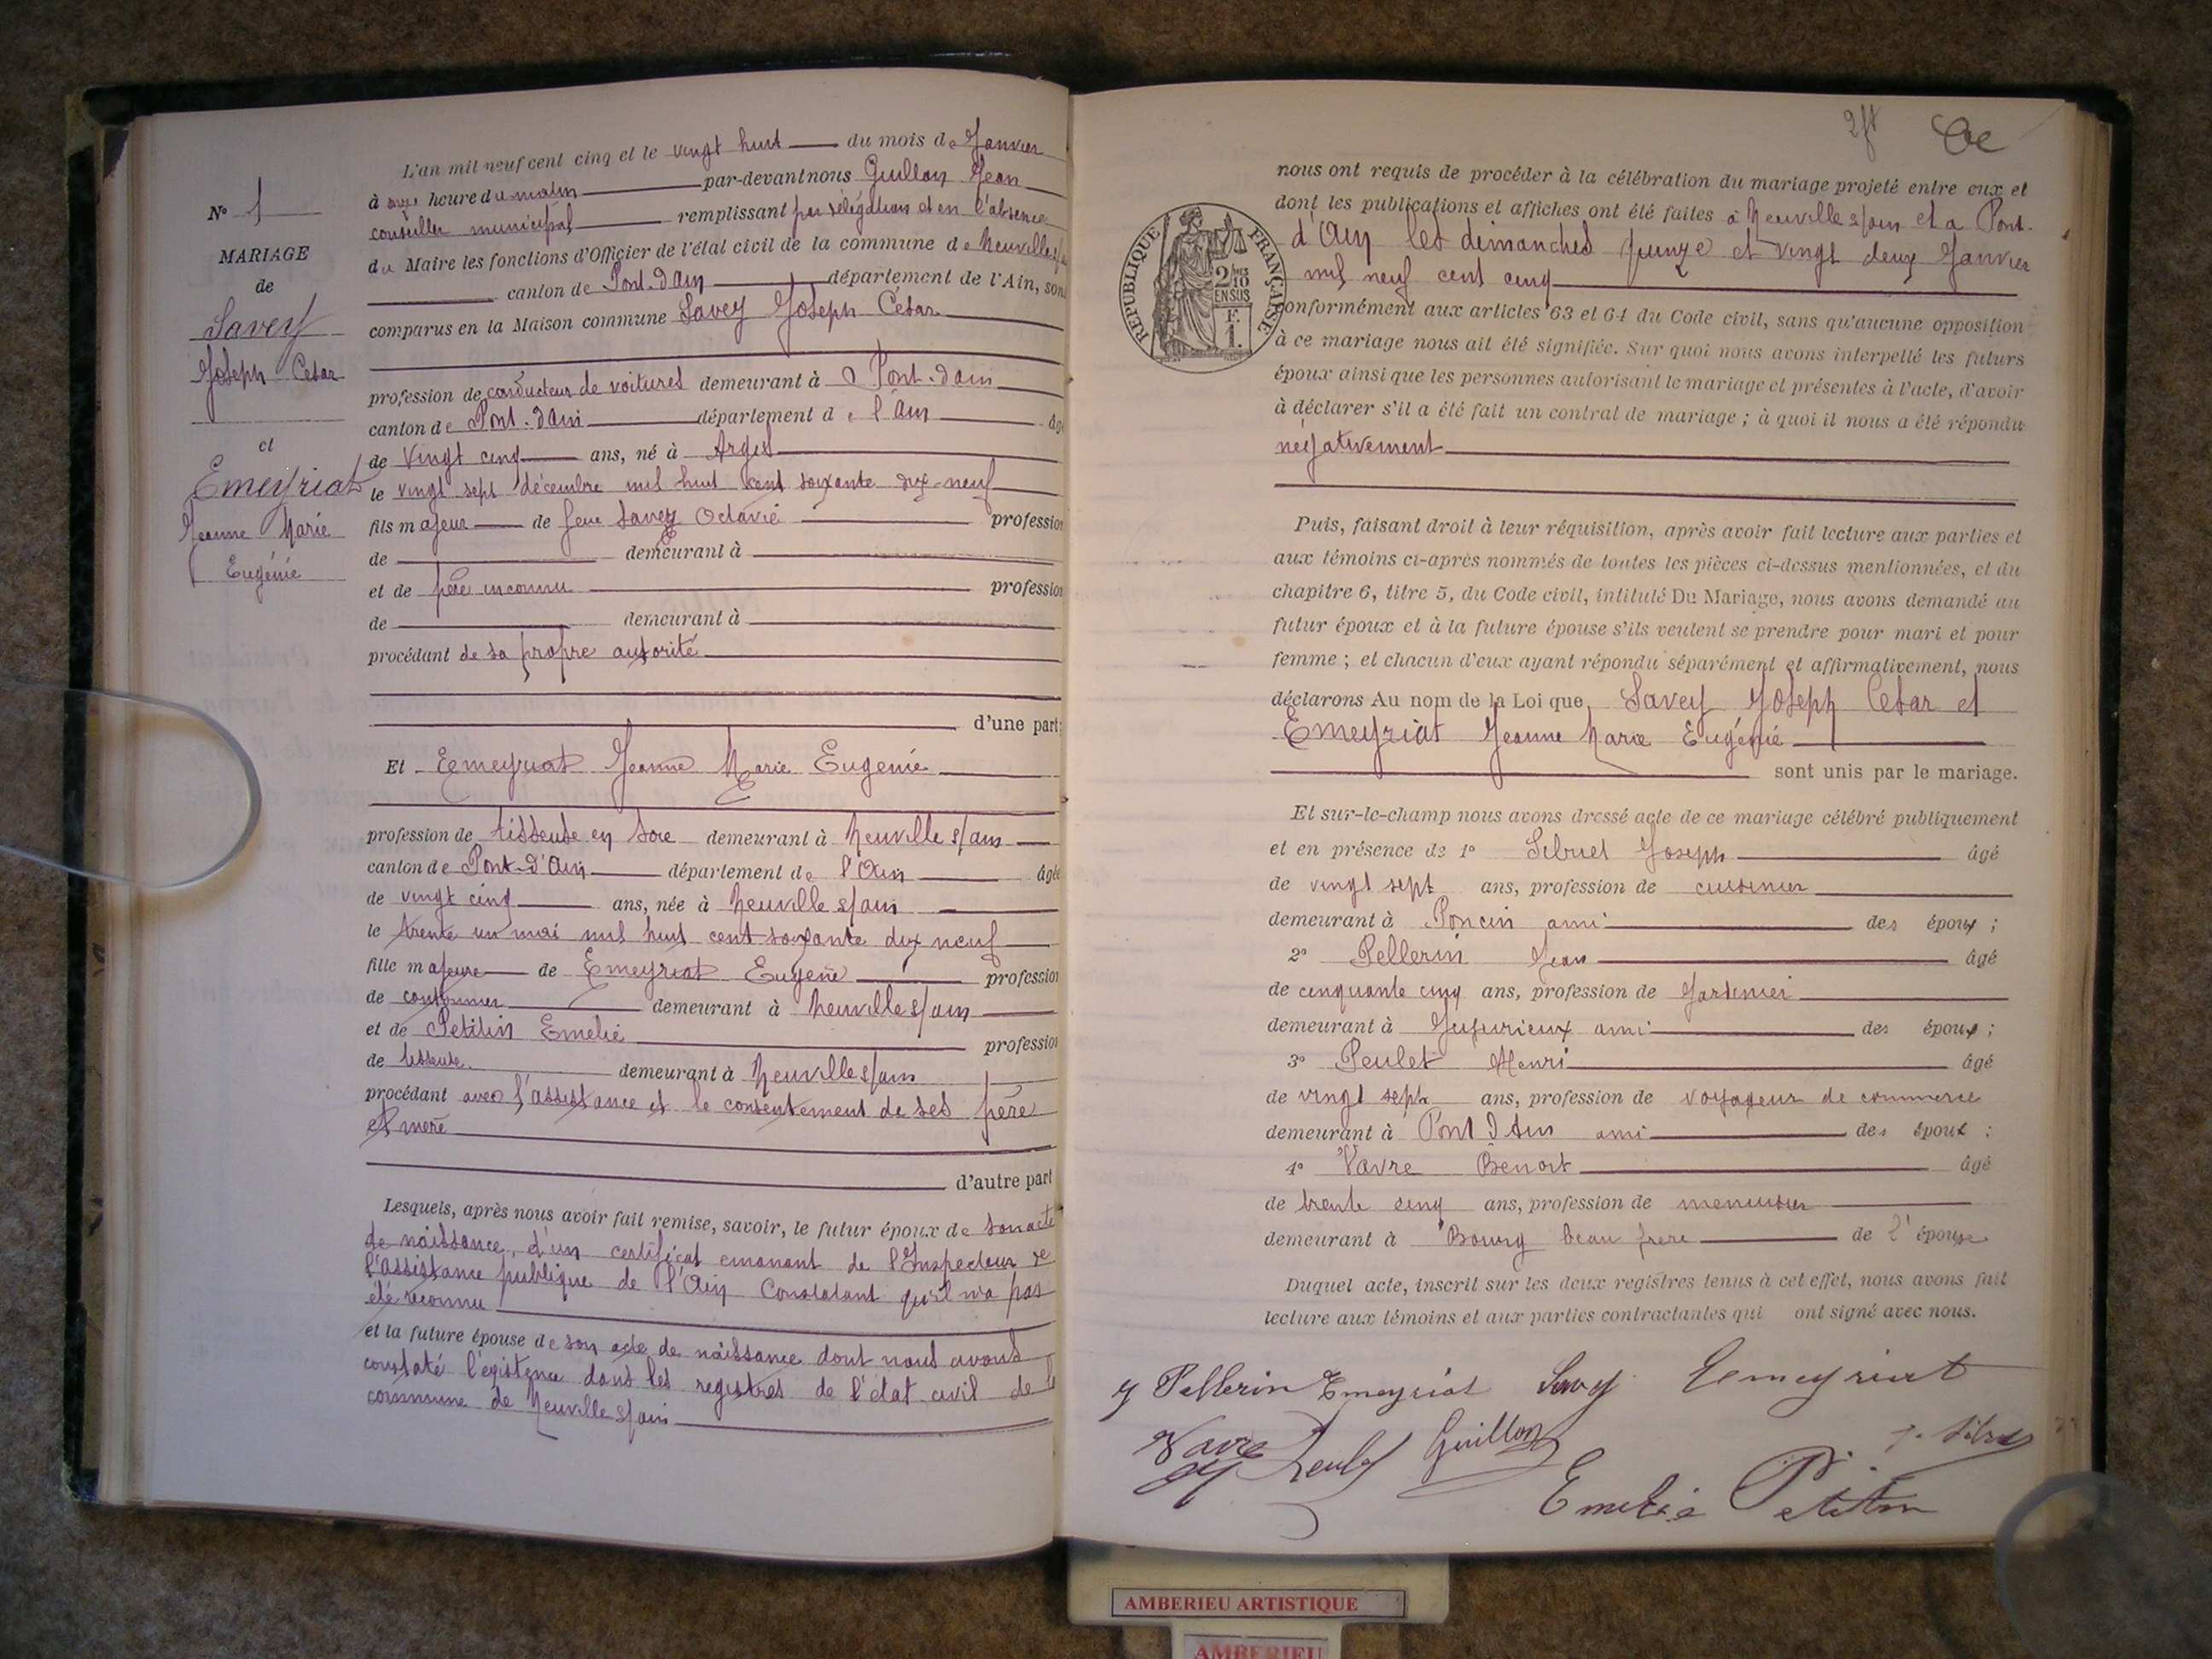 N° 1
MARIAGE
de
Savey
Joseph César
et
Emeyriat
Jeanne Marie
Eugénie
L'an mil neuf cent cinq et le vingt huit du mois de Janvier
à onze heure du matin par-devant nous Guillon Jean
conseiller municipal remplissant par délégation et en l'absence
du Maire les fonctions d'Officier de l'état civil de la commune de Neuville s/
canton de Pont-d'ain département de l'Ain, son
comparus en la Maison commune Savey Joseph César
profession de conducteur de voitures demeurant à Pont-d'ain
canton de Pont-d'ain département de l'Ain âgé
de vingt cinq ans, né à Arges
le vingt sept décembre mil huit cent soixante dix-neuf
fils majeur de feue Savey Octavie profession
de demeurant à
et de père inconnu profession
de demeurant à
procédant de sa propre autorité
d'une part;
Et Eemeyriat Jeanne Marie Eugénie
profession de tisseuse en soie demeurant à Neuville s/ain
canton de Pont-d'Ain département de l'Ain âgée
de vingt cinq ans, née à Neuville s/ain
le trente un mai mil huit cent soixante dix neuf
fille majeure de Emeyriat Eugène profession
de cantonnier demeurant à Neuville s/ain
et de Petitin Emelie profession
de tisseuse demeurant à Neuville s/ain
procédant avec l'assistance et le consentement de ses père
et mère
d'autre part
Lesquels, après nous avoir fait remise, savoir, le futur époux de son acte
de naissance, d'un certificat emanant de l'Inspecteur de
l'assistance publique de l'Ain Constatant qu'il n'a pas
été reconnu
et la future épouse de son acte de naissance dont nous avons
constaté l'existence dans les registres de l'état civil de la
commune de Neuville s/ain
nous ont requis de procéder à la célébration du mariage projeté entre eux et
dont les publications et affiches ont été faites à Neuville s/ain et a Pont-
d'Ain les dimanches quinze et vingt deux Janvier
mil neuf cent cinq
RÉPUBLIQUE FRANÇAISE
2/10
EN SUS
F.
1.
conformément aux articles 63 et 64 du Code civil, sans qu'aucune opposition
à ce mariage nous ait été signifiée. Sur quoi nous avons interpellé les futurs
époux ainsi que les personnes autorisant le mariage et présentes à l'acte, d'avoir
à déclarer s'il a été fait un contrat de mariage ; à quoi il nous a été répondu
négativement
Puis, faisant droit à leur réquisition, après avoir fait lecture aux parties et
aux témoins ci-après nommés de toutes les pièces ci-dessus mentionnées, et du
chapitre 6, titre 5, du Code civil, intitulé Du Mariage, nous avons demandé au
futur époux et à la future épouse s'ils veulent se prendre pour mari et pour
femme ; et chacun d'eux ayant répondu séparément et affirmativement, nous
déclarons Au nom de la Loi que Savey Joseph César et
Emeyriat Jeanne Marie Eugénie
sont unis par le mariage.
Et sur-le-champ nous avons dressé acte de ce mariage célébré publiquement
et en présence de 1° Joseph âgé
de vingt sept ans, profession de cuisinier
demeurant à Poncin ami des époux ;
2° Pellerin Jean âgé
de cinquante cinq ans, profession de Jardinier
demeurant à Jujurieux ami des époux ;
3° Peulet Henri âgé
de vingt sept ans, profession de voyageur de commerce
demeurant à Pont d'Ain ami des époux ;
4° Vavre Benoit âgé
de trente cinq ans, profession de menuisier
demeurant à Bourg beau frere de l'épouse
Duquel acte, inscrit sur les deux registres tenus à cet effet, nous avons fait
lecture aux témoins et aux parties contractantes qui ont signé avec nous.
J Pellerin Emeyriat Savey Eemeyriat
Vavre Peulet Guillon
Emelie Petitin
AMBERIEU ARTISTIQUE
AMBERIEU